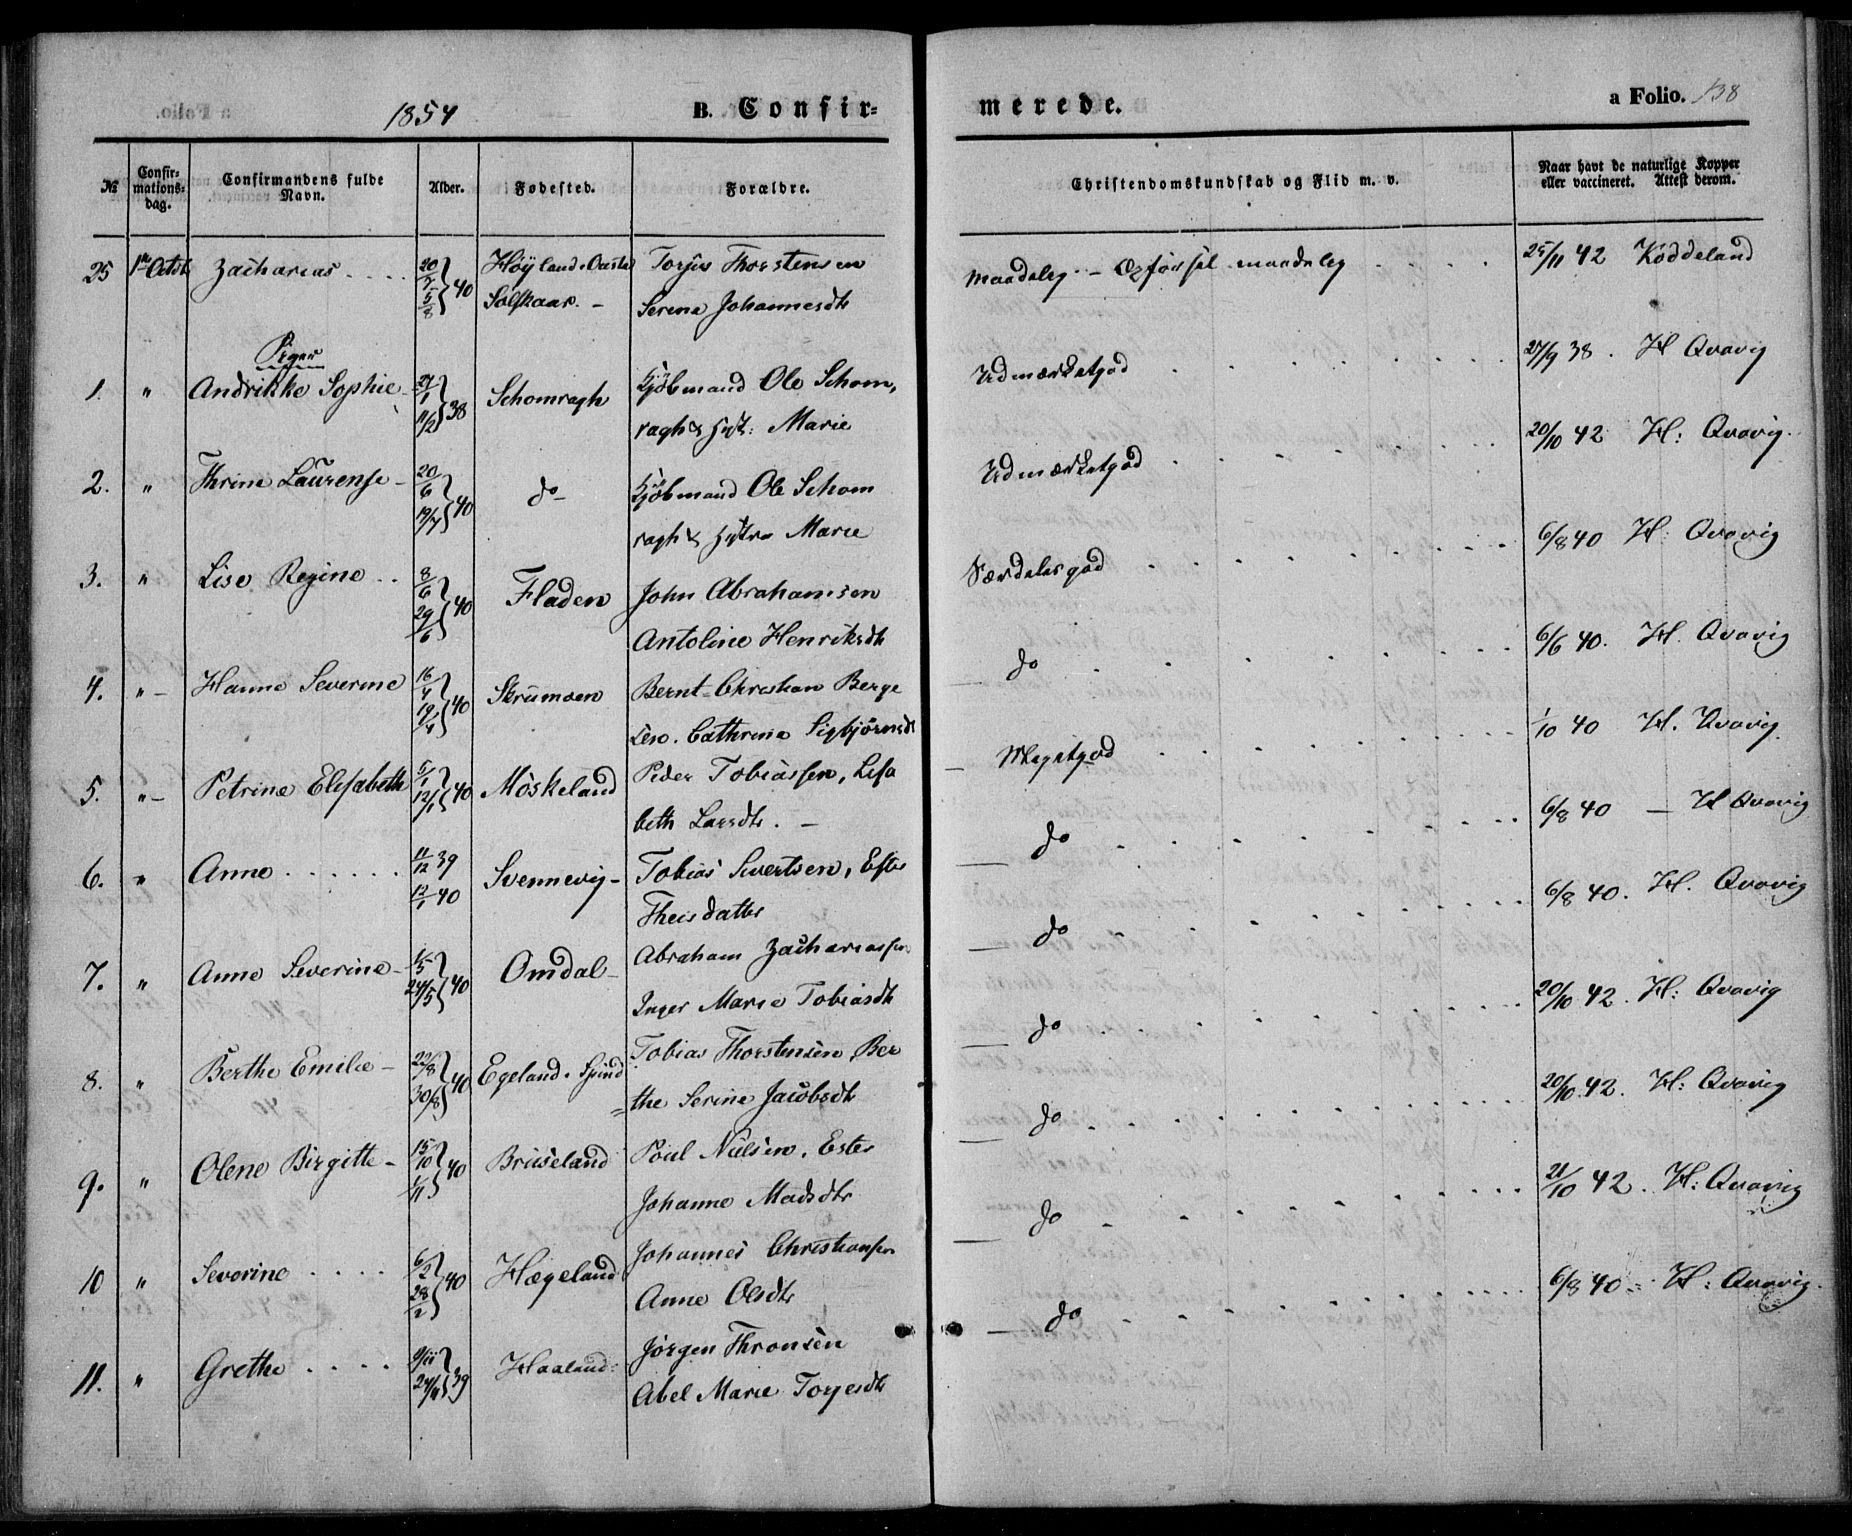 1854 B. Confir=
merede. a Folio. 138
No Confir-mations-dag. Confirmandens fulde Navn. Alder. Fødested. Forældre. Christendomskundskab og Flid m. v. Naar havt de naturlige Kopper eller vaccineret. Attest derom.
25 1ste Octob Zacharias .... 20/7 5/8 } 40 Høyland Torjus Thorstensen
Serine Johannesdtr
maadelig - Opførsel maadelig 25/11 42 Køddeland
Piger
1. " Andrikke Sophie 11/2 } 38 Schomragh Kjøbmand Ole Schom,
ragh & Hust: Marie
Udmærketgod 27/9 38. H Qvavig
2. " Thrine Laurense - 20/6 19/7 } 40 do - Kjøbmand Ole Schom
ragh & Hustru Marie
Udmærketgod 20/10 42 H: Qvavig.
3. " Lise Regine .. 8/6 29/6 } 40 Fladen John Abrahamsen
Antoline Henriksdtr
Særdelesgod 6/8 40 H: Qvavig
4. " - Hanne Severine 16/4 19/4 } 40 Skrumoen Bernt Christian Berge
sen. Cathrine Sigbjørnsdtr
do 6/6 40. H. Qvavig
5. " - Petrine Elisabeth 5/1 12/1 } 40 Møskeland Peder Tobiassen, Lisa
beth Larsdtr. -
Megetgod 1/10 40 H. Qvavig.
6. " Anne ...... 11/12 39 12/1 40 Svennevig - Tobias Sivertsen, Ester
Theisdatter
do 6/8 40 - H Qvavig
7. " Anne Severine - 1/5 24/5 } 40 Omdal - Abraham Zachariassen
Inger Marie Tobiasdtr
do 6/8 40. H. Qvavig
8. " Berthe Emilie - 22/8 30/8 } 40 Egeland. Spind Tobias Thorstensen, Ber
the Serine Jacobsdtr
do 20/10 42. H: Qvavig
9. " Olene Birgitte - 15/10 1/11 } 40 Briseland Poul Nielsen, Ester
Johanne Madsdtr
do 20/10 42. H: Qvavig
10 " Severine .... 6/2 28/2 } 40 Hægeland Johannes Christiansen
Anne Olsdtr
do 21/10 42. H: Qvavig
11. " Grethe .... 9/11 24/11 } 39 Haaland Jørgen Thronsen
Abel Marie Torjesdtr
do 6/8 40 - H: Qvavig.